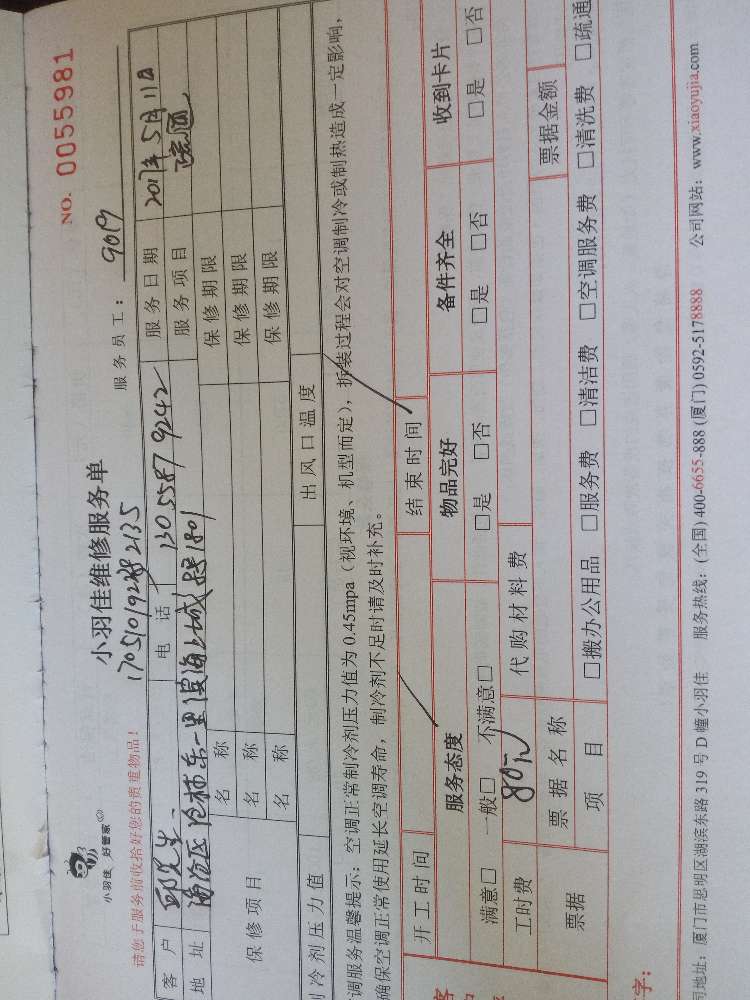 小羽佳 好管家
小羽佳维修服务单
NO. 0055981
170510192882135
请您于服务前收拾好您的贵重物品!
服务员工: 9019
客户 邱先生 电话 130 5587 9242 服务日期 2017年5月11日
地址 海沧区沧林东一里滨海上城 1801 服务项目
保修项目 名称 保修期限
名称 保修期限
名称 保修期限
制冷剂压力值 出风口温度
调服务温馨提示: 空调正常制冷剂压力值为0.45mpa (视环境、机型而定), 拆装过程会对空调制冷或制热造成一定影响,
确保空调正常使用延长空调寿命, 制冷剂不足时请及时补充。
开工时间 结束时间
服务态度 物品完好 备件齐全 收到卡片
满意□ 一般□ 不满意□ □是 □否 □是 □否 □是 □否
工时费 80元 代购材料费
票据 票据名称 票据金额
项目 □搬办公用品 □服务费 □清洁费 □空调服务费 □清洗费 □疏通
字:
司地址: 厦门市思明区湖滨东路319号D幢小羽佳 服务热线: (全国) 400-6655-888 (厦门) 0592-5178888 公司网站: www.xiaoyujia.com